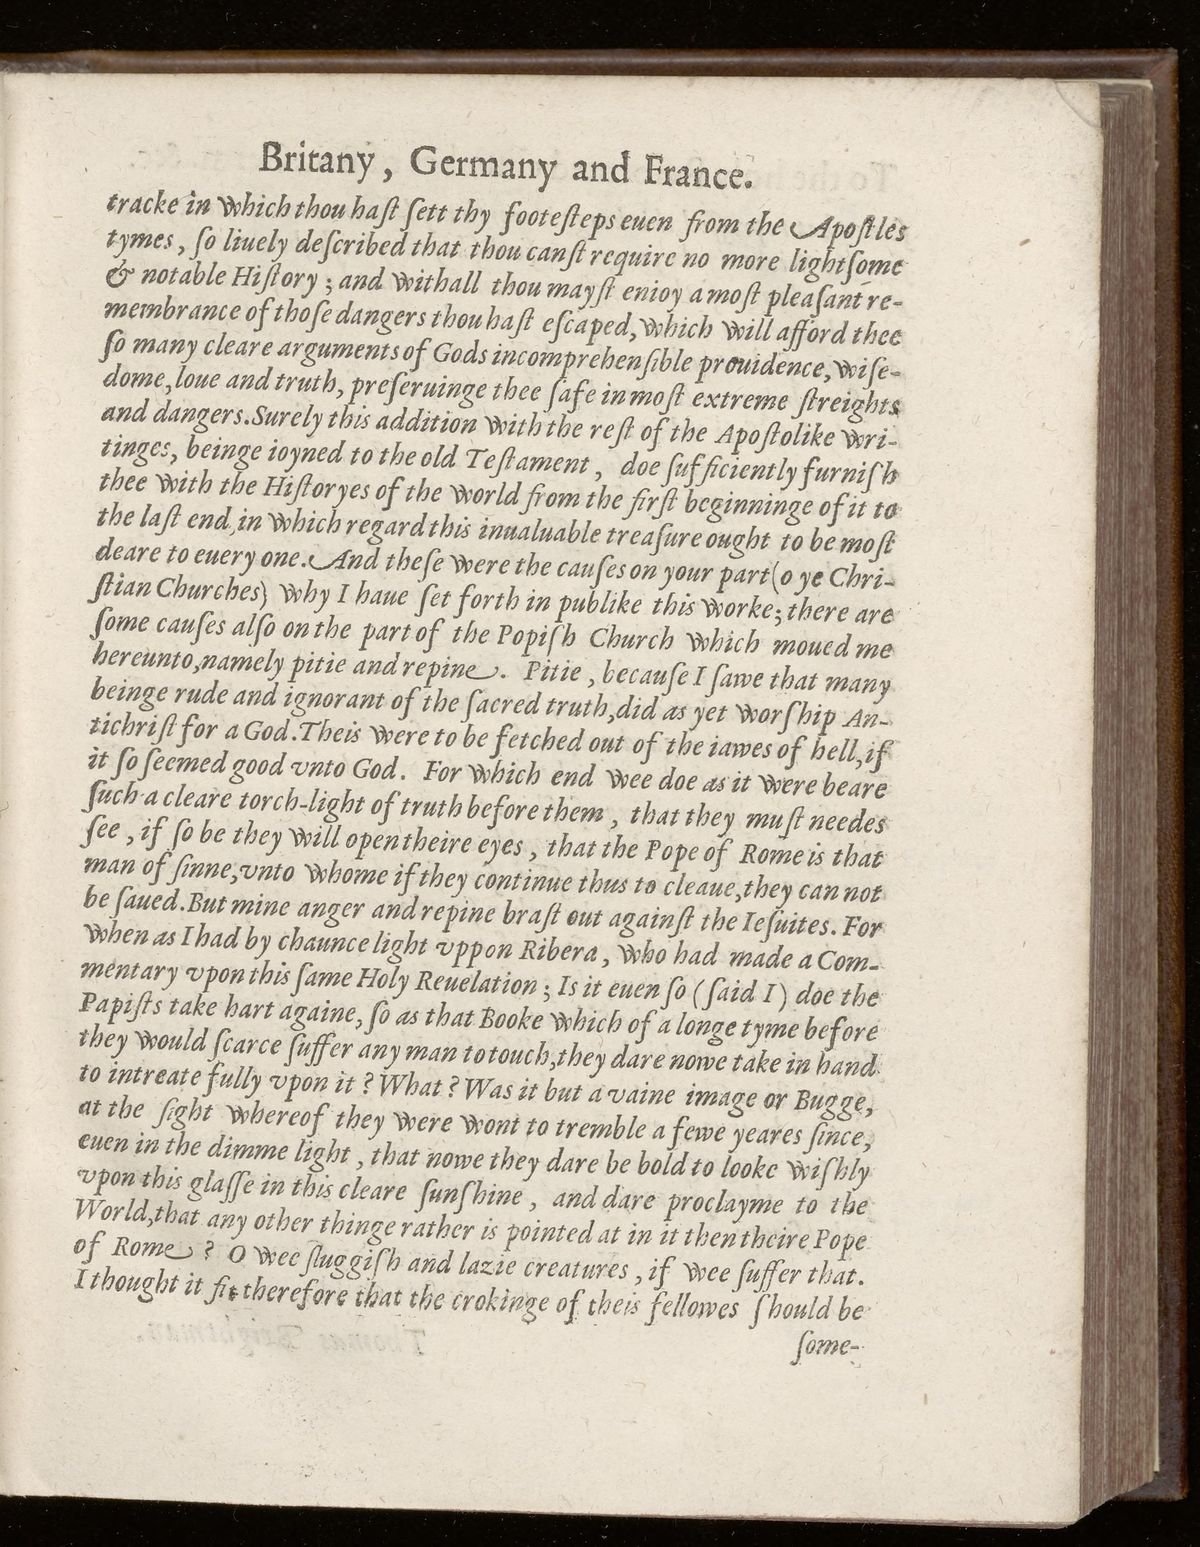 Britany, Germany and France.
tracke in which thou haſt ſett thy footeſteps euen from the Apoſtles
tymes, ſo liuely deſcribed that thou canſt require no more lightſome
& notable Hiſtory; and withall thou mayſt enioy a moſt pleaſant re-
membrance of thoſe dangers thou haſt eſcaped, which will afford thee
ſo many cleare arguments of Gods incomprehenſible prouidence, wiſe-
dome, loue and truth, preſeruinge thee ſafe in moſt extreme ſtreights
and dangers. Surely this addition with the reſt of the Apoſtolike wri-
tinges, beinge ioyned to the old Teſtament, doe ſufficiently furniſh
thee with the Hiſtoryes of the world from the firſt beginninge of it to
the laſt end, in which regard this inualuable treaſure ought to be moſt
deare to euery one. And theſe were the cauſes on your part (o ye Chri-
ſtian Churches) why I haue ſet forth in publike this worke; there are
ſome cauſes alſo on the part of the Popiſh Church which moued me
hereunto, namely pitie and repine. Pitie, becauſe I ſawe that many
beinge rude and ignorant of the ſacred truth, did as yet worſhip An-
tichriſt for a God. Theis were to be fetched out of the iawes of hell, if
it ſo ſeemed good vnto God. For which end wee doe as it were beare
ſuch a cleare torch-light of truth before them, that they muſt needes
ſee, if ſo be they will open theire eyes, that the Pope of Rome is that
man of ſinne, vnto whome if they continue thus to cleaue, they can not
be ſaued. But mine anger and repine braſt out againſt the Ieſuites. For
when as I had by chaunce light vppon Ribera, who had made a Com-
mentary vpon this ſame Holy Reuelation; Is it euen ſo (ſaid I) doe the
Papiſts take hart againe, ſo as that Booke which of a longe tyme before
they would ſcarce ſuffer any man to touch, they dare nowe take in hand
to intreate fully vpon it? What? Was it but a vaine image or Bugge,
at the ſight whereof they were wont to tremble a fewe yeares ſince,
euen in the dimme light, that nowe they dare be bold to looke wiſhly
vpon this glaſſe in this cleare ſunſhine, and dare proclayme to the
World, that any other thinge rather is pointed at in it then theire Pope
of Rome? O wee ſluggiſh and lazie creatures, if wee ſuffer that.
I thought it fit therefore that the crokinge of theis fellowes ſhould be
ſome-